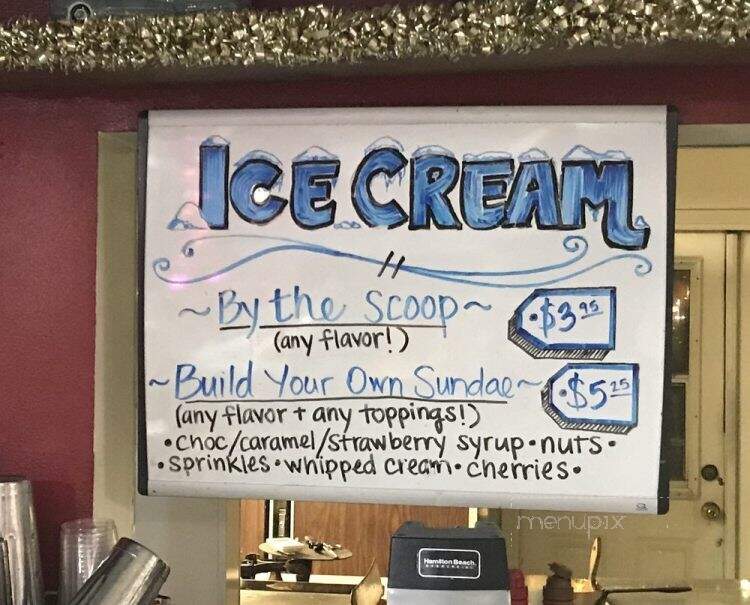 ICE CREAM
~ By the Scoop ~ $3.95
(any flavor!)
~ Build Your Own Sundae ~ $5.25
(any flavor + any toppings!)
• choc/caramel/strawberry syrup • nuts •
• sprinkles • whipped cream • cherries •
menupix
Hamilton Beach
COMMERCIAL